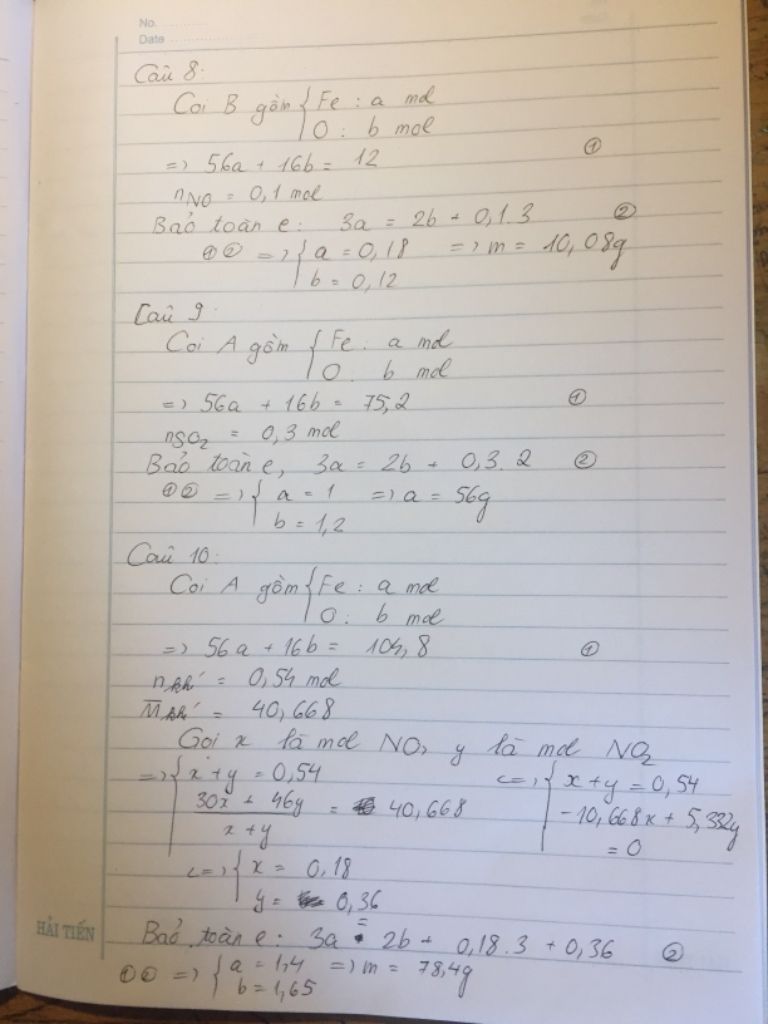 No. ............
Date ......................
Câu 8:
Coi B gồm { Fe : a mol
O : b mol
=> 56a + 16b = 12 ①
nNO = 0,1 mol
Bảo toàn e: 3a = 2b + 0,1.3 ②
①② => { a = 0,18 => m = 10,08g
b = 0,12
Câu 9
Coi A gồm { Fe : a mol
O : b mol
=> 56a + 16b = 75,2 ①
nSO2 = 0,3 mol
Bảo toàn e, 3a = 2b + 0,3.2 ②
①② => { a = 1 => a = 56g
b = 1,2
Câu 10:
Coi A gồm { Fe : a mol
O : b mol
=> 56a + 16b = 104,8 ①
nkhí = 0,54 mol
M̅khí = 40,668
Gọi x là mol NO, y là mol NO2
=> { x + y = 0,54 <=> { x + y = 0,54
(30x + 46y)/(x + y) = 40,668 -10,668x + 5,332y
= 0
<=> { x = 0,18
y = 0,36
Bảo toàn e: 3a = 2b + 0,18.3 + 0,36 ②
①② => { a = 1,4 => m = 78,4g
b = 1,65
HẢI TIẾN